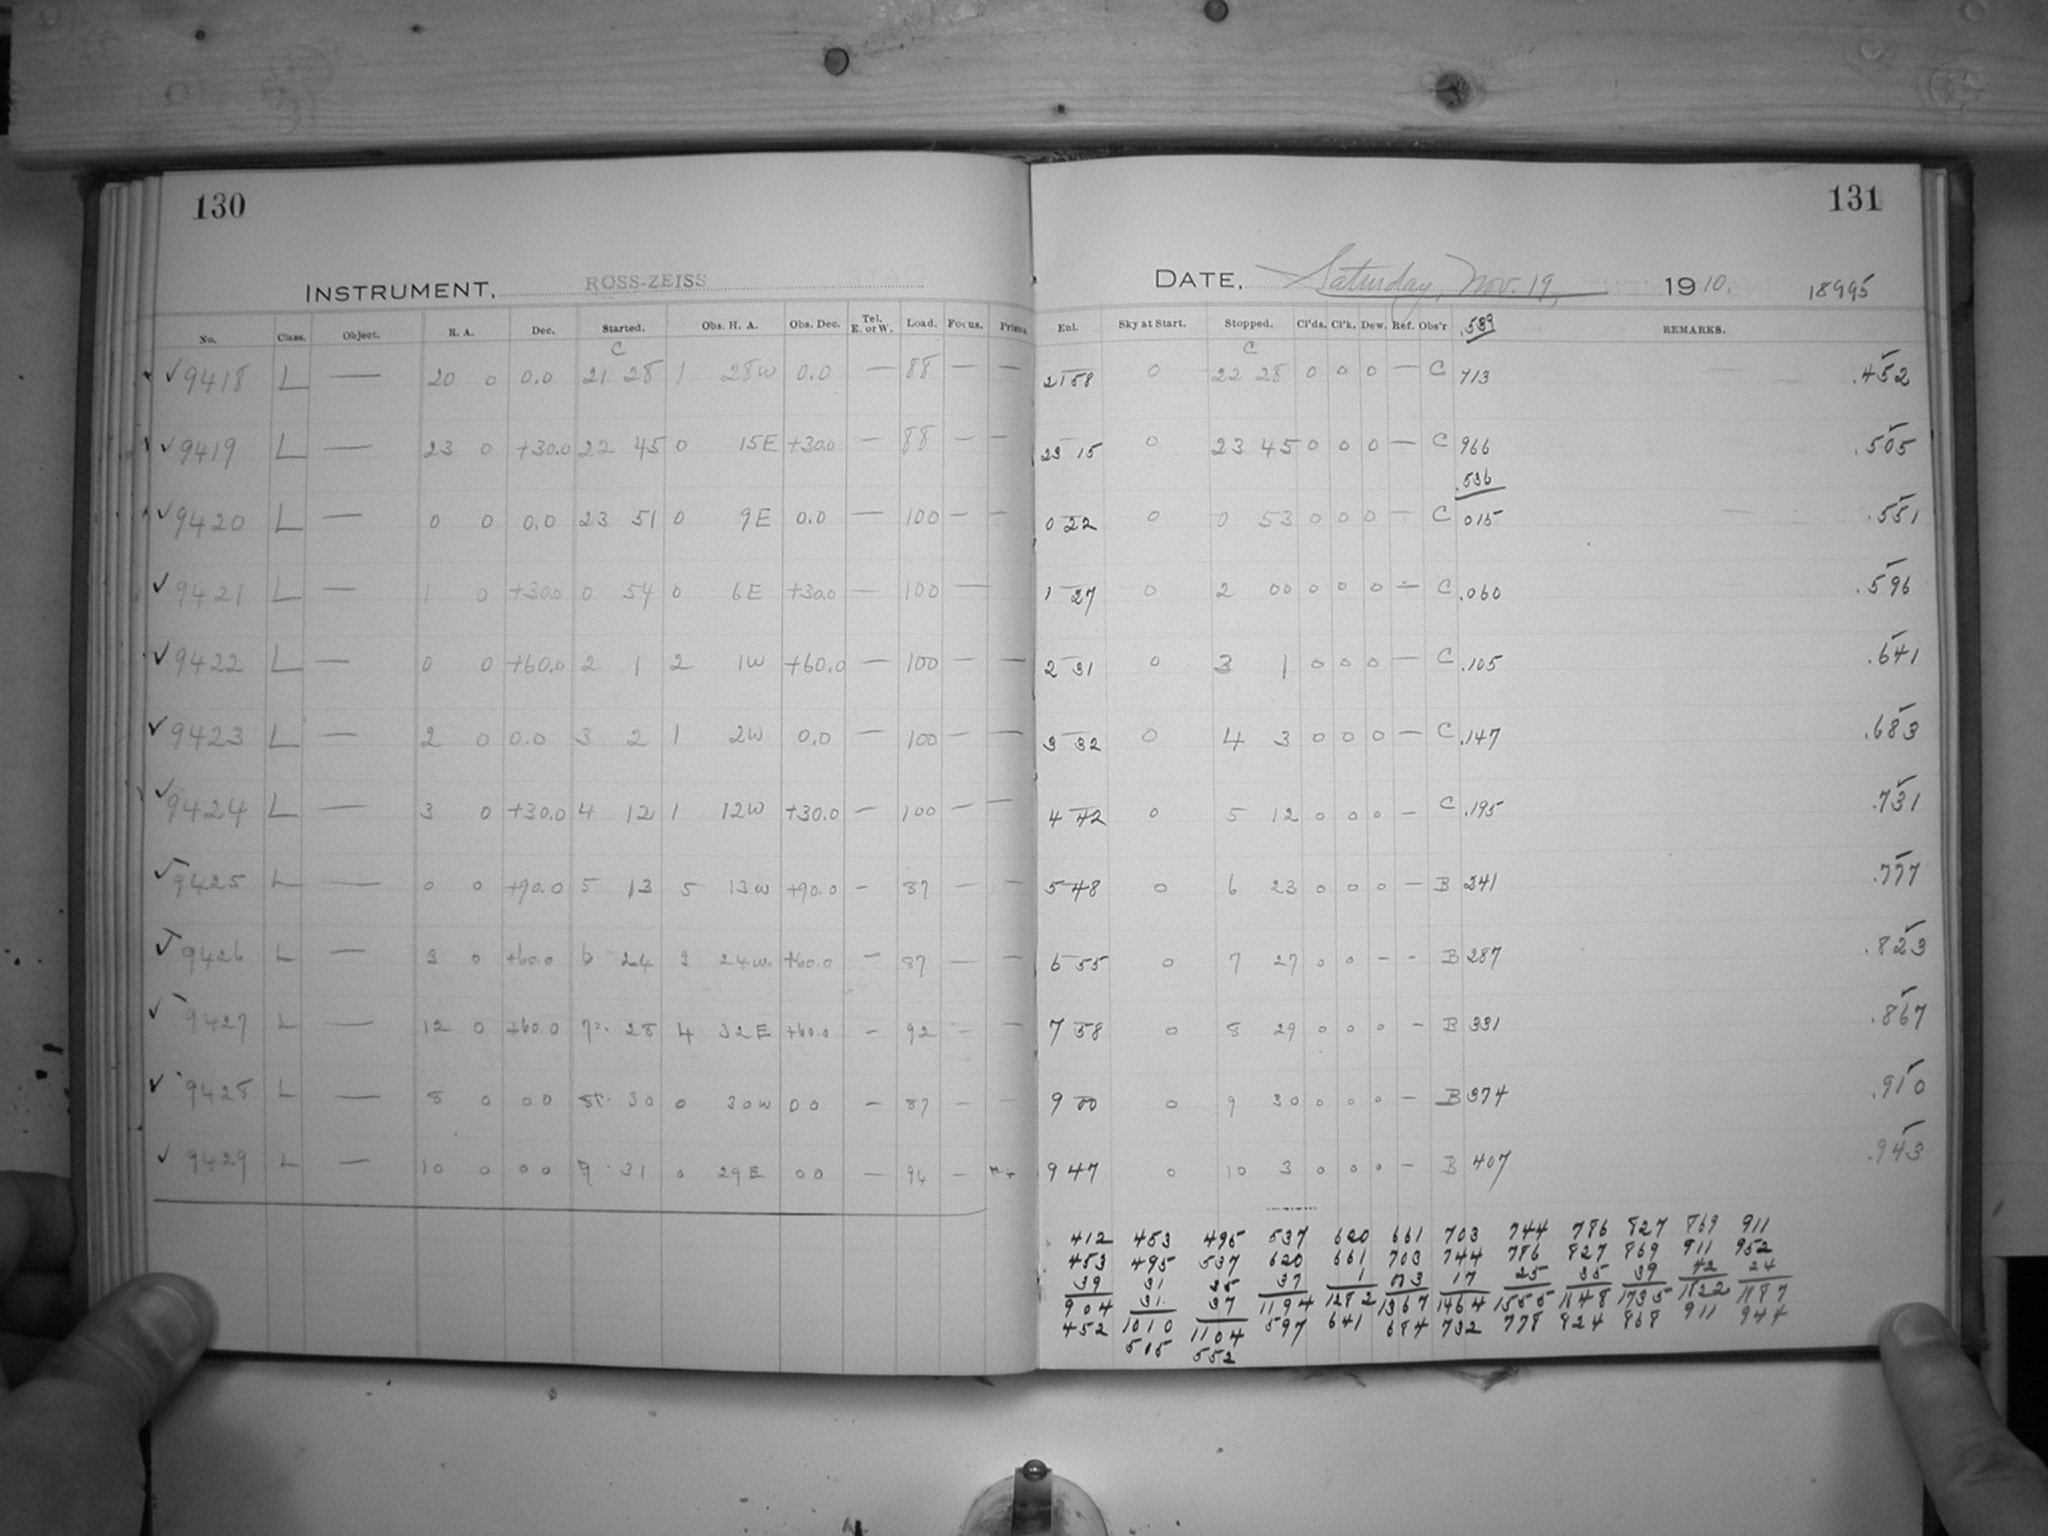 130
INSTRUMENT, ROSS-ZEISS
No. Class. Object. R. A. Dec. Started. Obs. H. A. Obs. Dec. Tel. E. or W. Load. Focus. Prisms
C
✓ 9418 L — 20 0 0.0 21 28 1 28W 0.0 — 88 — —
✓ 9419 L — 23 0 +30.0 22 45 0 15E +30.0 — 88 — —
✓ 9420 L — 0 0 0.0 23 51 0 9E 0.0 — 100 — —
✓ 9421 L — 1 0 +30.0 0 54 0 6E +30.0 — 100 —
✓ 9422 L — 0 0 +60.0 2 1 2 1W +60.0 — 100 — —
✓ 9423 L — 2 0 0.0 3 2 1 2W 0.0 — 100 — —
✓ 9424 L — 3 0 +30.0 4 12 1 12W +30.0 — 100 — —
✓ 9425 L — 0 0 +90.0 5 13 5 13W +90.0 — 87 — —
✓ 9426 L — 3 0 +60.0 6 24 3 24W +60.0 — 87 — —
✓ 9427 L — 12 0 +60.0 7 28 4 32E +60.0 — 92 — —
✓ 9428 L — 8 0 0 0 8 30 0 30W 0 0 — 87 — —
✓ 9429 L — 10 0 0 0 9 31 0 29E 0 0 — 94 —
131
DATE, Saturday, Nov. 19, 1910. 18995
Enl. Sky at Start. Stopped. Cl'ds. Cl'k. Dew. Ref. Obs'r .589 REMARKS.
C
21 58 0 22 28 0 0 0 — C 713 .452
23 15 0 23 45 0 0 0 — C 966 .505
.536
0 22 0 0 53 0 0 0 — C 015 .551
1 27 0 2 00 0 0 0 — C .060 .596
2 31 0 3 1 0 0 0 — C .105 .641
3 32 0 4 3 0 0 0 — C .147 .683
4 42 0 5 12 0 0 0 — C .195 .731
5 48 0 6 23 0 0 0 — B 241 .777
6 55 0 7 27 0 0 - - B 287 .823
7 58 0 8 29 0 0 0 — B 331 .867
9 00 0 9 30 0 0 0 — B 374 .910
9 47 0 10 3 0 0 0 — B 407 .943
412 453 495 537 620 661 703 744 786 827 869 911
453 495 537 620 661 703 744 786 827 869 911 952
39 31 35 37 1 17 25 35 39 42 24
904 31 37 1194 1282 1367 1464 1555 1648 1735 1822 1887
452 1010 1104 597 641 684 732 778 824 868 911 944
505 552